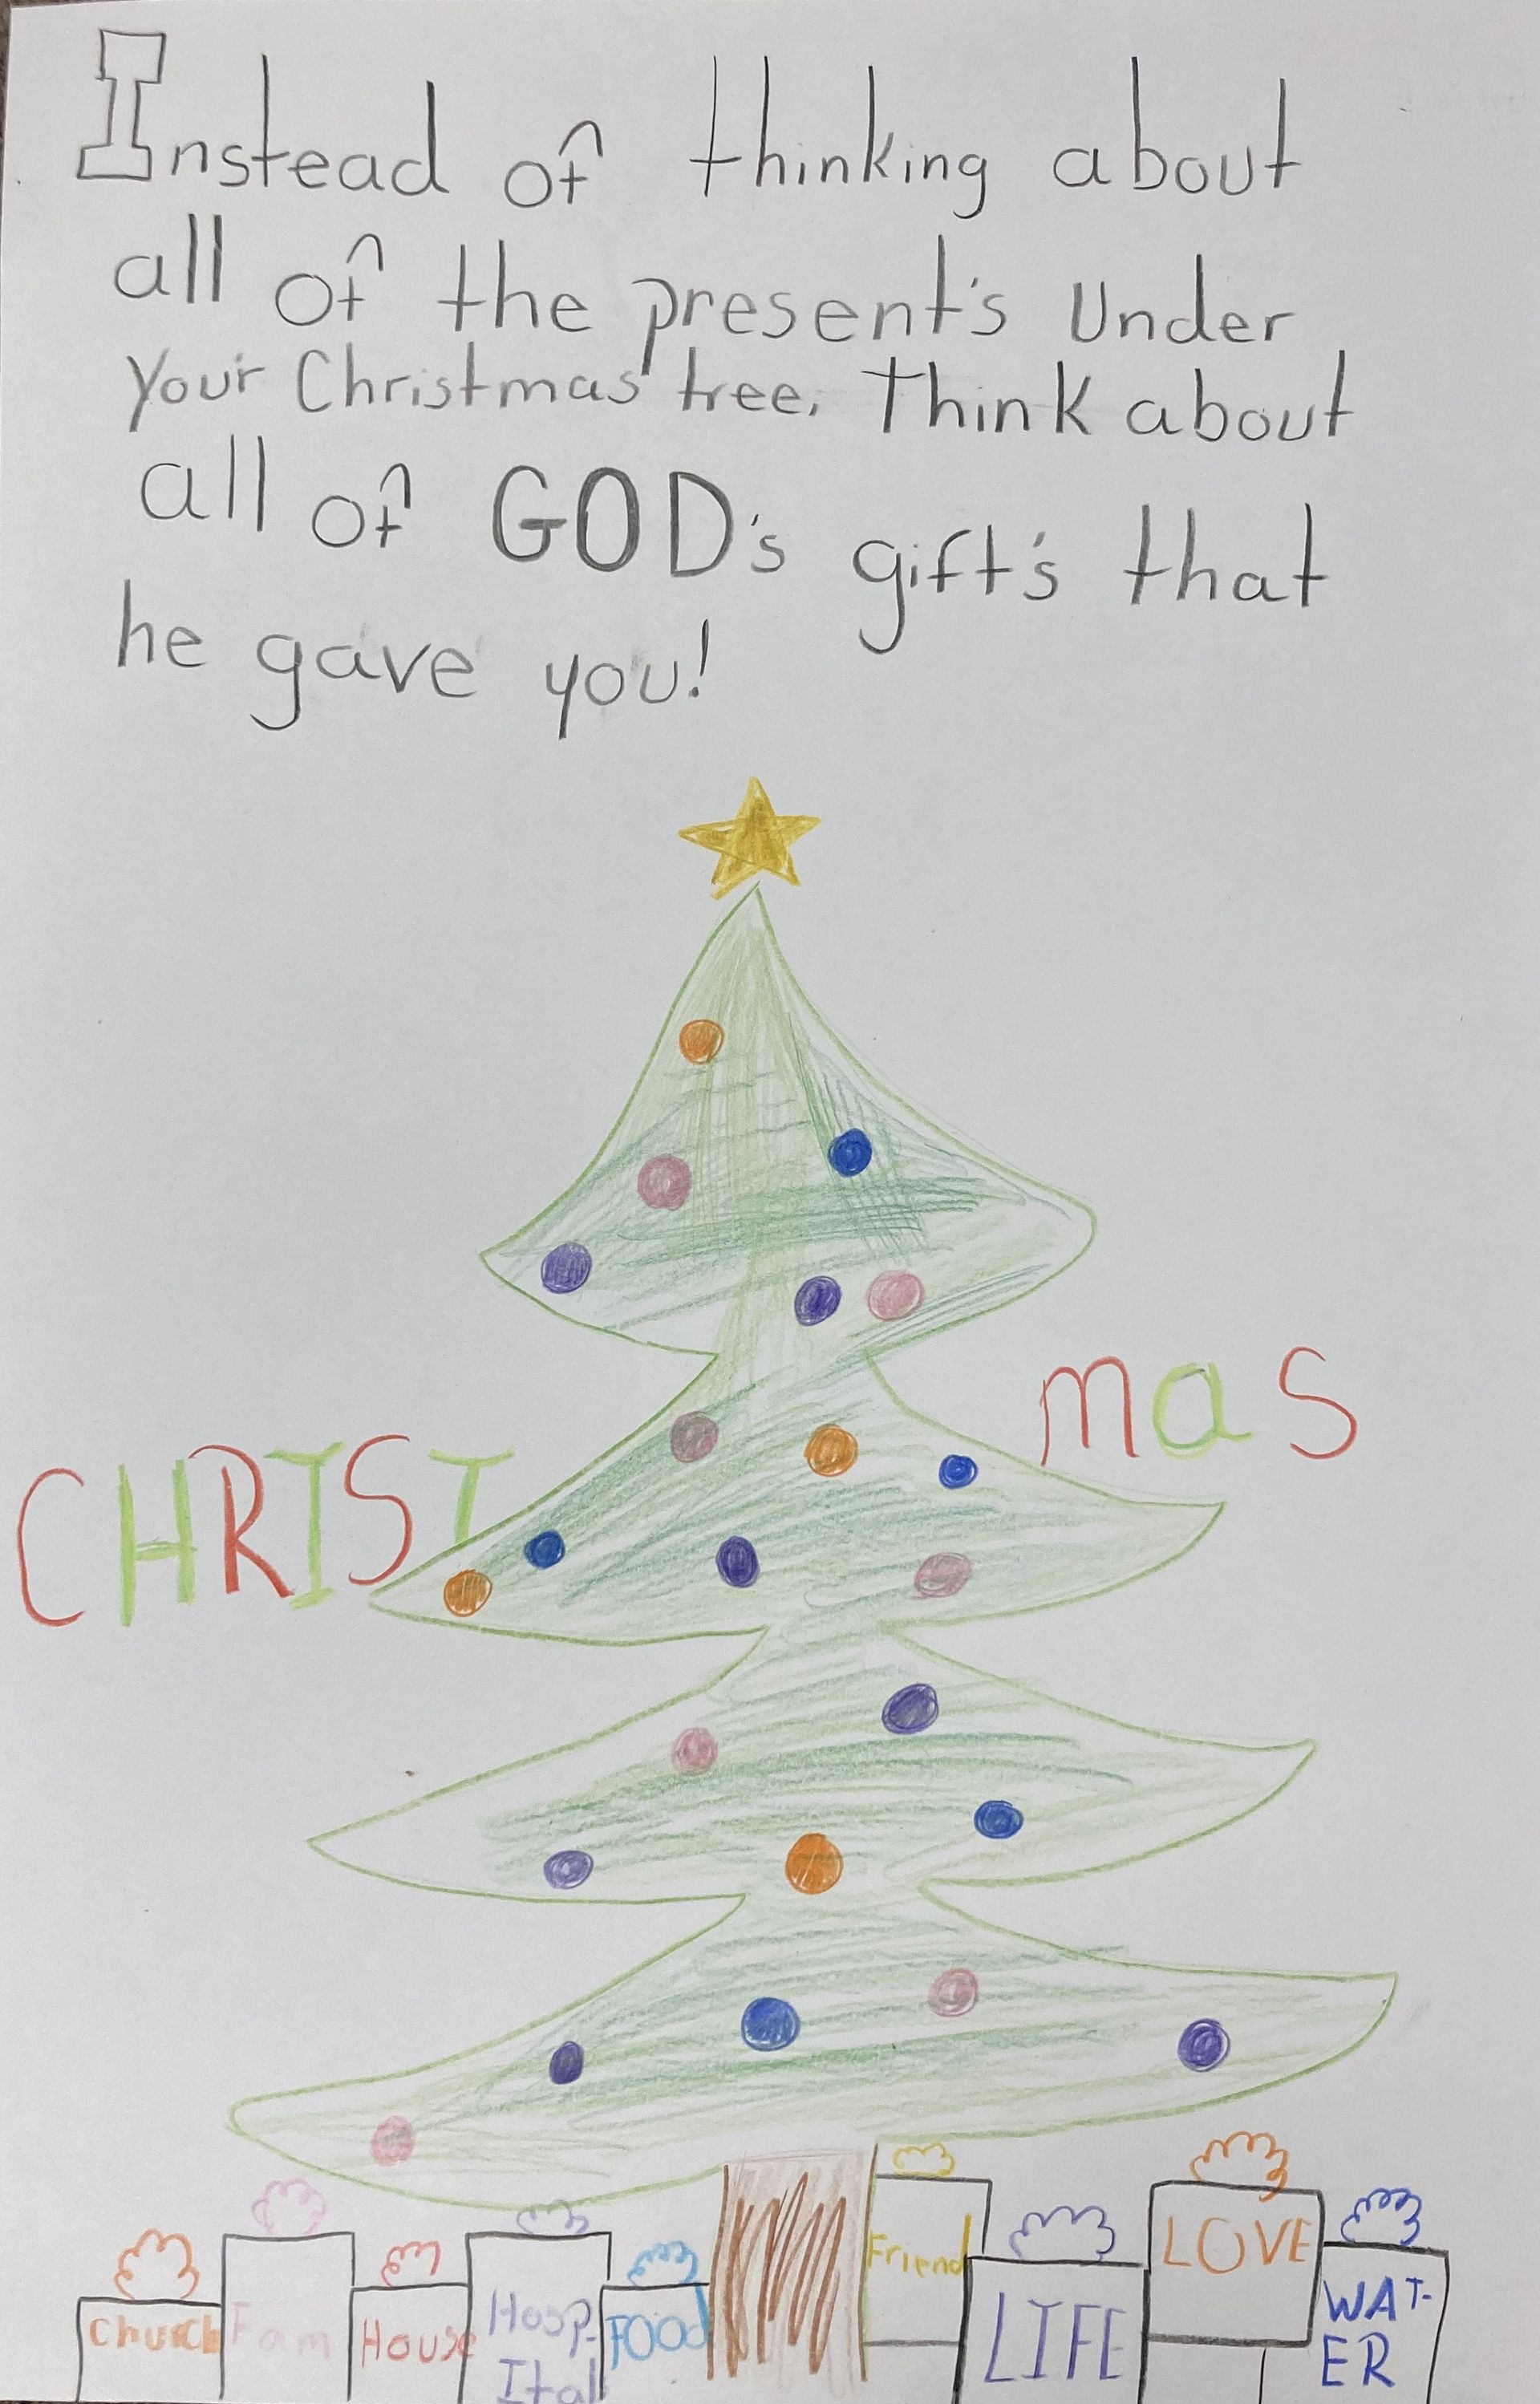 Instead of thinking about
all of the present's Under
your Christmas tree. Think about
all of GOD's gift's that
he gave you!
CHRIST mas
Church
Fam
House
Hosp-
Ital
FOOD
Friend
LIFE
LOVE
WAT-
ER